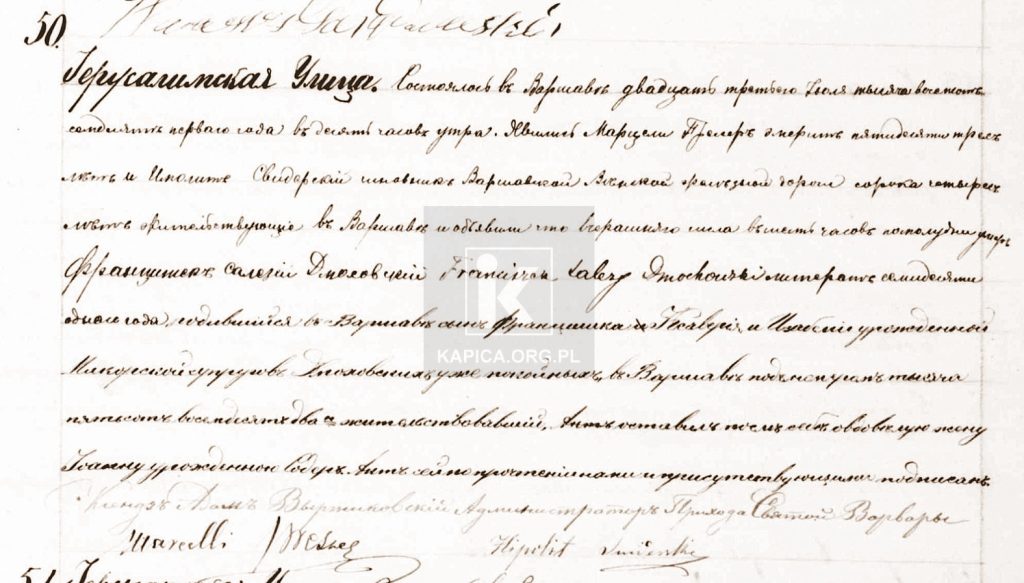 50.
Іерусалимская Улица. Состоялось въ Варшавѣ двадцать третьяго Іюля тысяча восемьсотъ
семдесятъ перваго года въ десять часовъ утра. Явились Марцели эмеритъ пятидесяти трехъ
лѣтъ и Иполитъ Свидерскій чиновникъ Варшавской Вѣнской желѣзной дороги сорока четырехъ
лѣтъ жительствующіе въ Варшавѣ и объявили что вчерашняго числа въ шесть часовъ пополудни умеръ
Францишекъ Салезій Дмоховскій Franciszek Salezy Dmochowski литератъ семидесяти
одного года, родившійся въ Варшавѣ сынъ Францишка и Изабеліи урожденной
супруговъ Дмоховскихъ уже покойныхъ, въ Варшавѣ подъ тысяча
пятьсотъ восемдесятъ два жительствовавшій, Актъ оставилъ послѣ себѣ овдовѣлую жену
Іоанну урожденною Актъ сей по прочтеніи нами и присутствующими подписанъ.
Ксендзъ Адамъ Администраторъ Прихода Святой Варвары
Marcelli Hipolit
51. KAPICA.ORG.PL